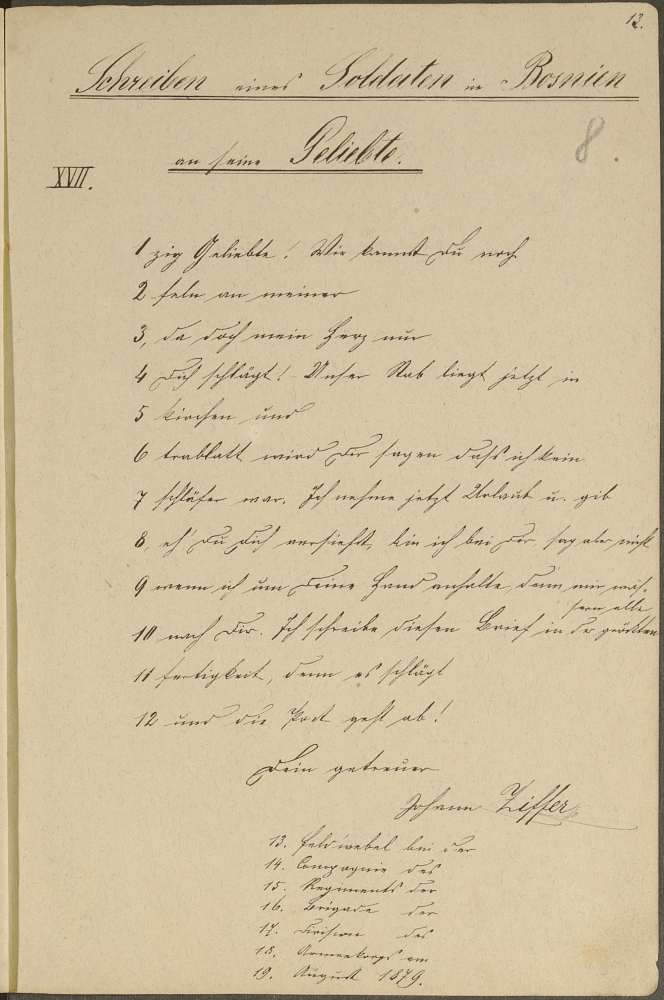 12.
Schreiben eines Soldaten in Bosnien
an seine Geliebte.
8.
XVII.
1 zig Geliebte! Wie kannst Du noch
2 feln an meiner
3, da doch mein Herz nur
4 Dich schlägt! Unser Stab liegt jetzt in
5 kirchen und
6 trablatt wird Dir sagen dass ich kein
7 schläfer war. Ich nehme jetzt Urlaub u. gib
8, eh' Du Dich versiehst, bin ich bei Dir, sag aber nicht
9 wenn ich um Deine Hand anhalte, denn mir wäs-
sern alle
10 nach Dir. Ich schreibe diesen Brief in der größten
11 fertigkeit, denn es schlägt
12 und die Post geht ab!
Dein getreuer
Johann Ziffer
13. Feldwebel bei der
14. Compagnie des
15. Regiments der
16. Brigade der
17. Division des
18. Armeekorps am
19. August 1879.